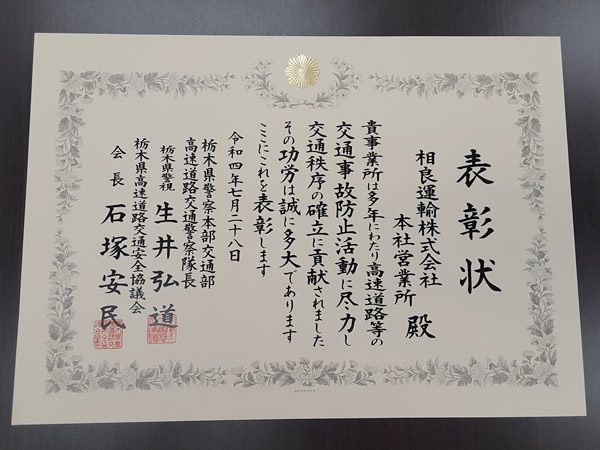 表彰状
相良運輸株式会社
本社営業所 殿
貴事業所は多年にわたり高速道路等の
交通事故防止活動に尽力し
交通秩序の確立に貢献されました
その功労は誠に多大であります
ここにこれを表彰します
令和四年七月二十八日
栃木県警察本部交通部
高速道路交通警察隊長
栃木県警視 生井弘道
栃木県高速道路交通安全協議会
会長 石塚安民